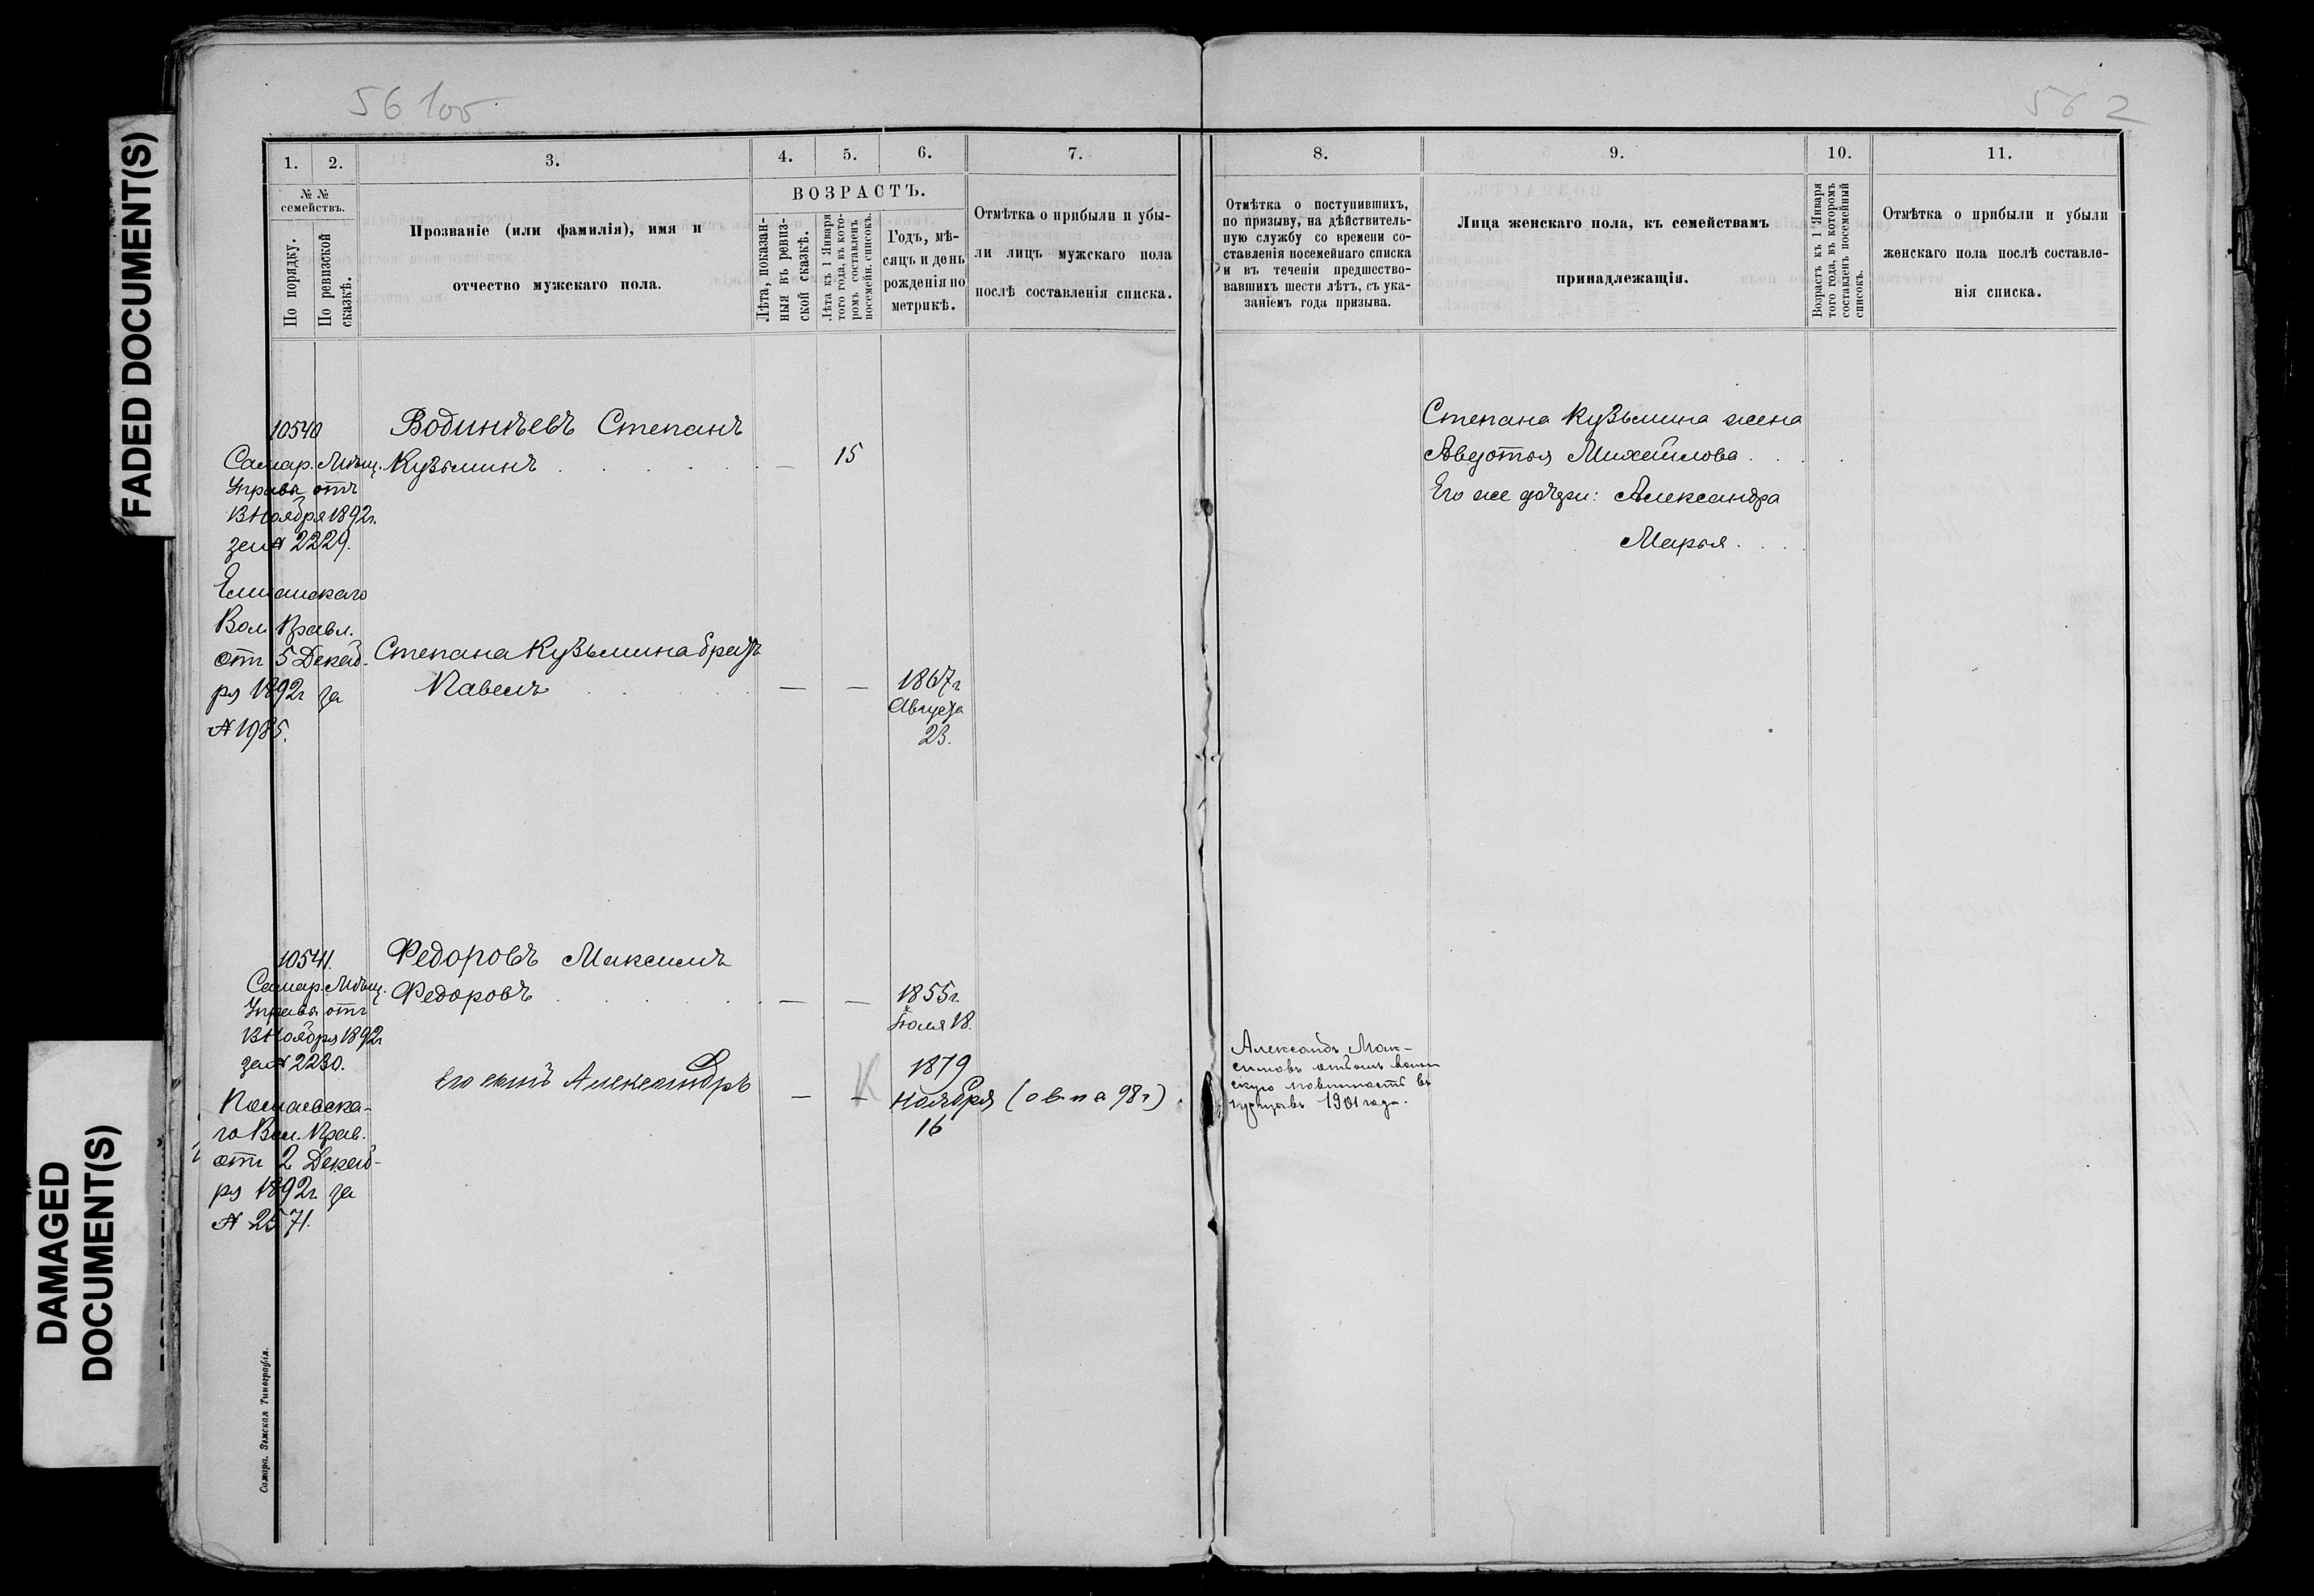 FADED DOCUMENT(S)
DAMAGED
DOCUMENT(S)
56 об
562
1.
2.
3.
4.
5.
6.
7.
8.
9.
10.
11.
№ №
семействъ.
По порядку.
По ревизской
сказкѣ.
Прозваніе (или фамилія), имя и
отчество мужскаго пола.
ВОЗРАСТЪ.
Лѣта, показан-
ныя въ ревиз-
ской сказкѣ.
Лѣта къ 1 Января
того года, въ кото-
ромъ составленъ
посемейн. списокъ.
Годъ, мѣ-
сяцъ и день
рожденія по
метрикѣ.
Отмѣтка о прибыли и убы-
ли лицъ мужскаго пола
послѣ составленія списка.
Отмѣтка о поступившихъ,
по призыву, на дѣйствитель-
ную службу со времени со-
ставленія посемейнаго списка
и въ теченіи предшество-
вавшихъ шести лѣтъ, съ ука-
заніемъ года призыва.
Лица женскаго пола, къ семействамъ
принадлежащія.
Возрастъ къ 1 Января
того года, въ которомъ
составленъ посемейный
списокъ.
Отмѣтка о прибыли и убыли
женскаго пола послѣ составле-
нія списка.
10540
Самар. Мѣщ.
Управа отъ
13 Ноября 1892г.
за № 2229.
Вол. Правл.
отъ 5 Декаб-
ря 1892г за
№ 1985.
Водинѣевъ Степанъ
Кузьминъ . . . . . — 15
Степана Кузьмина братъ
Павелъ . . . . — — 1867г
Августа
23.
Степана Кузьмина жена
Авдотья Михайлова . . . .
Его же дочери: Александра
Марья . . . .
10541.
Самар. Мѣщ.
Управа отъ
13 Ноября 1892г
за № 2230.
го Вол. Прав.
отъ 2 Декаб-
ря 1892г. за
№ 2571.
Федоровъ Максимъ
Федоровъ . . . . . — — 1855г.
Іюля 18.
Его сынъ Александръ — — 1879
Ноября
16
Александръ Мак-
симовъ отбылъ воин
скую повинность въ
1901 года.
Самара. Земская Типографія.